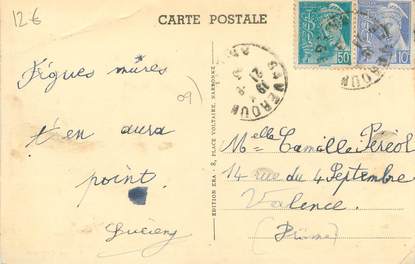 12€
CARTE POSTALE
50
10
SAVERDUN
Figues mûres
t'en aura
point.
Lucien
09)
EDITION ERA - 8, PLACE VOLTAIRE, NARBONNE
Melle Camille Périol
14 rue du 4 Septembre
Valence
(Drôme)